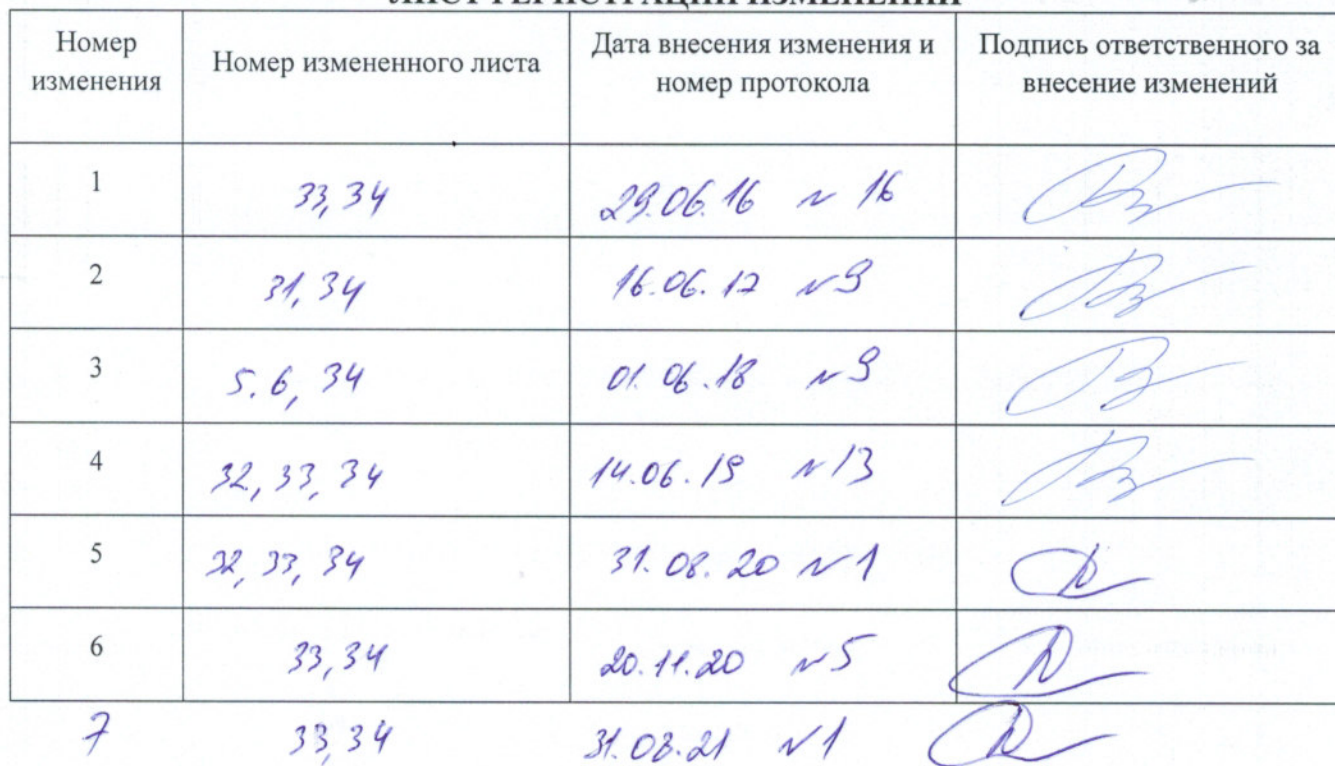 ЛИСТ РЕГИСТРАЦИИ ИЗМЕНЕНИЙ
Номер изменения Номер измененного листа Дата внесения изменения и номер протокола Подпись ответственного за внесение изменений
1 33, 34 29.06.16 № 16
2 31, 34 16.06.17 № 9
3 5. 6, 34 01.06.18 № 9
4 32, 33, 34 14.06.19 № 13
5 32, 33, 34 31.08.20 № 1
6 33, 34 20.11.20 № 5
7 33, 34 31.08.21 № 1